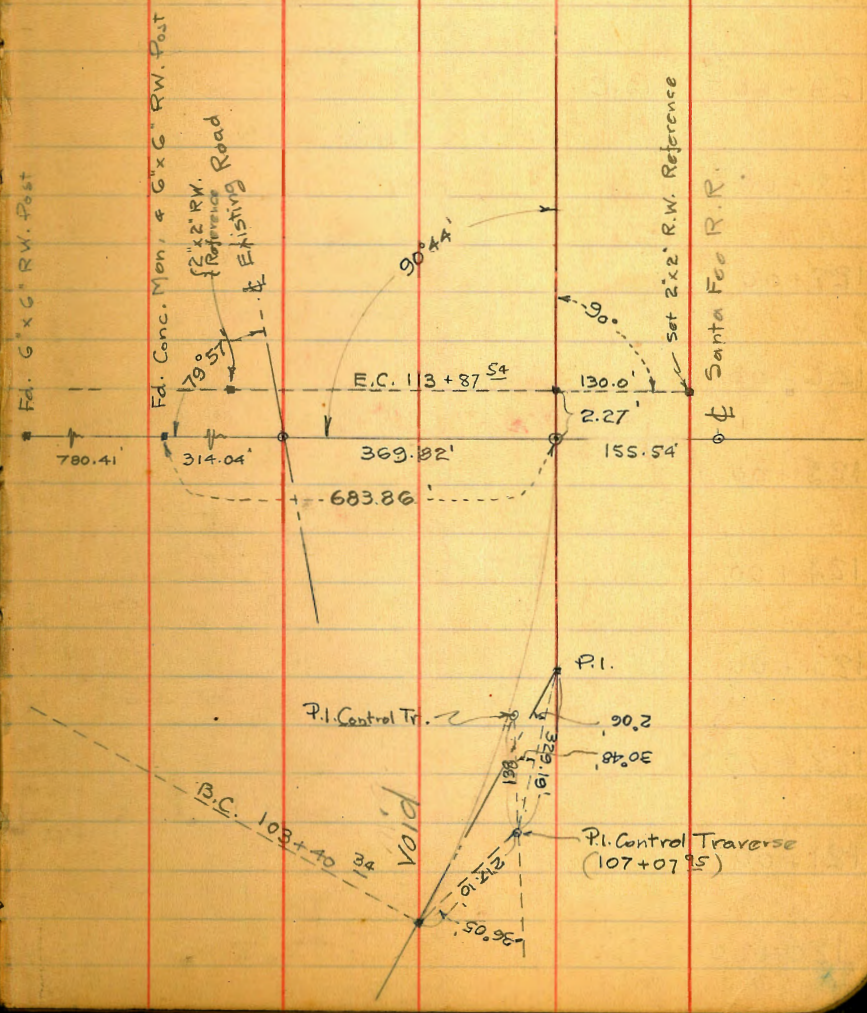 Fd. 6"x6" RW. Post
Fd. Conc. Mon. & 6"x6" RW. Post
2"x2" RW.
Reference
℄ Existing Road
79°57'
90°44'
90°
Set 2"x2" R.W. Reference
℄ Santa Fee R.R.
E.C. 113+87 54
130.0'
2.27'
780.41'
314.04'
369.82'
155.54'
683.86'
P.I.
P.I. Control Tr.
2°06'
30°48'
329.19'
P.I. Control Traverse
(107+07 95)
B.C. 103+40 34
Void
217.10'
36°05'